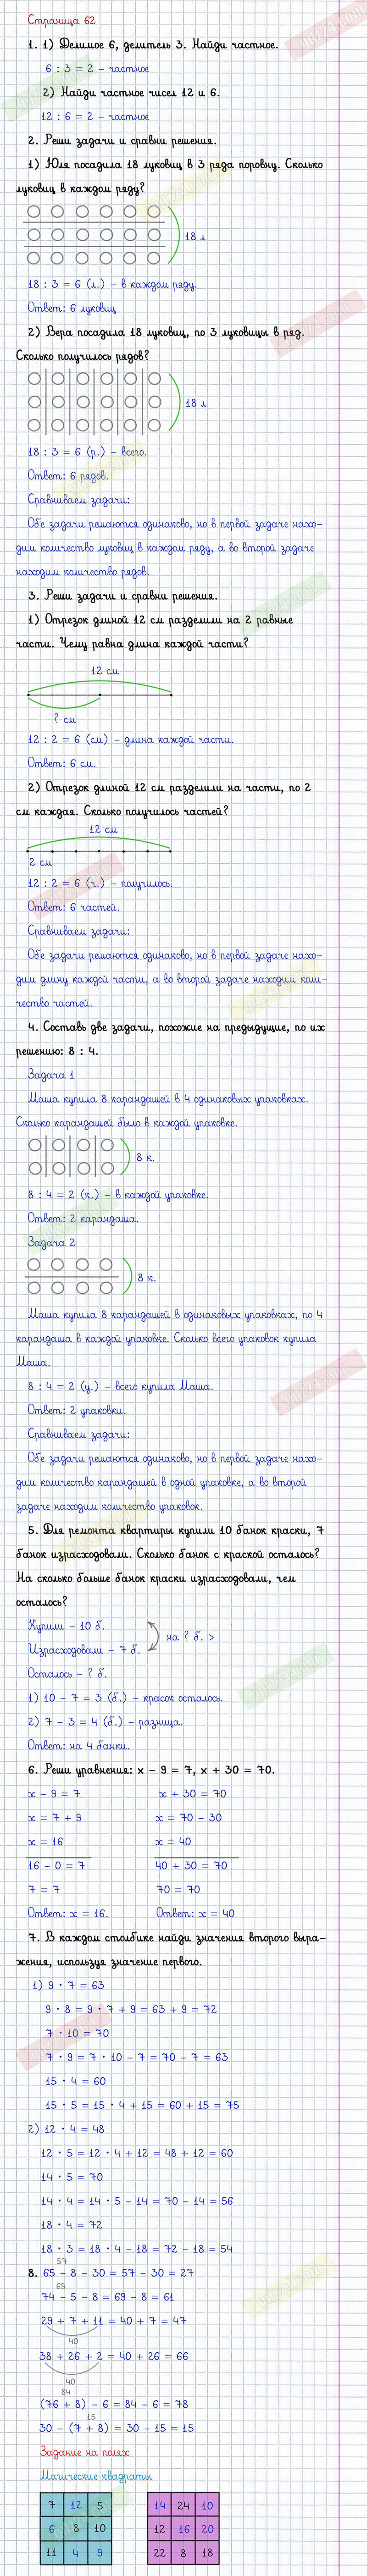 Страница 62
1. 1) Делимое 6, делитель 3. Найди частное.
6 : 3 = 2 – частное
2) Найди частное чисел 12 и 6.
12 : 6 = 2 – частное
2. Реши задачи и сравни решения.
1) Юля посадила 18 луковиц в 3 ряда поровну. Сколько
луковиц в каждом ряду?
18 л
18 : 3 = 6 (л.) – в каждом ряду.
Ответ: 6 луковиц
2) Вера посадила 18 луковиц, по 3 луковицы в ряд.
Сколько получилось рядов?
18 л
18 : 3 = 6 (р.) – всего.
Ответ: 6 рядов.
Сравниваем задачи:
Обе задачи решаются одинаково, но в первой задаче нахо–
дим количество луковиц в каждом ряду, а во второй задаче
находим количество рядов.
3. Реши задачи и сравни решения.
1) Отрезок длиной 12 см разделили на 2 равные
части. Чему равна длина каждой части?
12 см
? см
12 : 2 = 6 (см) – длина каждой части.
Ответ: 6 см.
2) Отрезок длиной 12 см разделили на части, по 2
см каждая. Сколько получилось частей?
12 см
2 см
12 : 2 = 6 (ч.) – получилось.
Ответ: 6 частей.
Сравниваем задачи:
Обе задачи решаются одинаково, но в первой задаче нахо–
дим длину каждой части, а во второй задаче находим коли–
чество частей.
4. Составь две задачи, похожие на предыдущие, по их
решению: 8 : 4.
Задача 1
Маша купила 8 карандашей в 4 одинаковых упаковках.
Сколько карандашей было в каждой упаковке.
8 к.
8 : 4 = 2 (к.) – в каждой упаковке.
Ответ: 2 карандаша.
Задача 2
8 к.
Маша купила 8 карандашей в одинаковых упаковках, по 4
карандаша в каждой упаковке. Сколько всего упаковок купила
Маша.
8 : 4 = 2 (у.) – всего купила Маша.
Ответ: 2 упаковки.
Сравниваем задачи:
Обе задачи решаются одинаково, но в первой задаче нахо–
дим количество карандашей в одной упаковке, а во второй
задаче находим количество упаковок.
5. Для ремонта квартиры купили 10 банок краски, 7
банок израсходовали. Сколько банок с краской осталось?
На сколько больше банок краски израсходовали, чем
осталось?
Купили – 10 б.
на ? б. >
Израсходовали – 7 б.
Осталось – ? б.
1) 10 – 7 = 3 (б.) – красок осталось.
2) 7 – 3 = 4 (б.) – разница.
Ответ: на 4 банки.
6. Реши уравнения: х – 9 = 7, х + 30 = 70.
х – 9 = 7 х + 30 = 70
х = 7 + 9 х = 70 – 30
х = 16 х = 40
16 – 0 = 7 40 + 30 = 70
7 = 7 70 = 70
Ответ: х = 16. Ответ: х = 40
7. В каждом столбике найди значения второго выра–
жения, используя значение первого.
1) 9 · 7 = 63
9 · 8 = 9 · 7 + 9 = 63 + 9 = 72
7 · 10 = 70
7 · 9 = 7 · 10 – 7 = 70 – 7 = 63
15 · 4 = 60
15 · 5 = 15 · 4 + 15 = 60 + 15 = 75
2) 12 · 4 = 48
12 · 5 = 12 · 4 + 12 = 48 + 12 = 60
14 · 5 = 70
14 · 4 = 14 · 5 – 14 = 70 – 14 = 56
18 · 4 = 72
18 · 3 = 18 · 4 – 18 = 72 – 18 = 54
57
8. 65 – 8 – 30 = 57 – 30 = 27
69
74 – 5 – 8 = 69 – 8 = 61
29 + 7 + 11 = 40 + 7 = 47
40
38 + 26 + 2 = 40 + 26 = 66
40
84
(76 + 8) – 6 = 84 – 6 = 78
15
30 – (7 + 8) = 30 – 15 = 15
Задание на полях
Магические квадраты
7 12 5 14 24 10
6 8 10 12 16 20
11 4 9 22 8 18